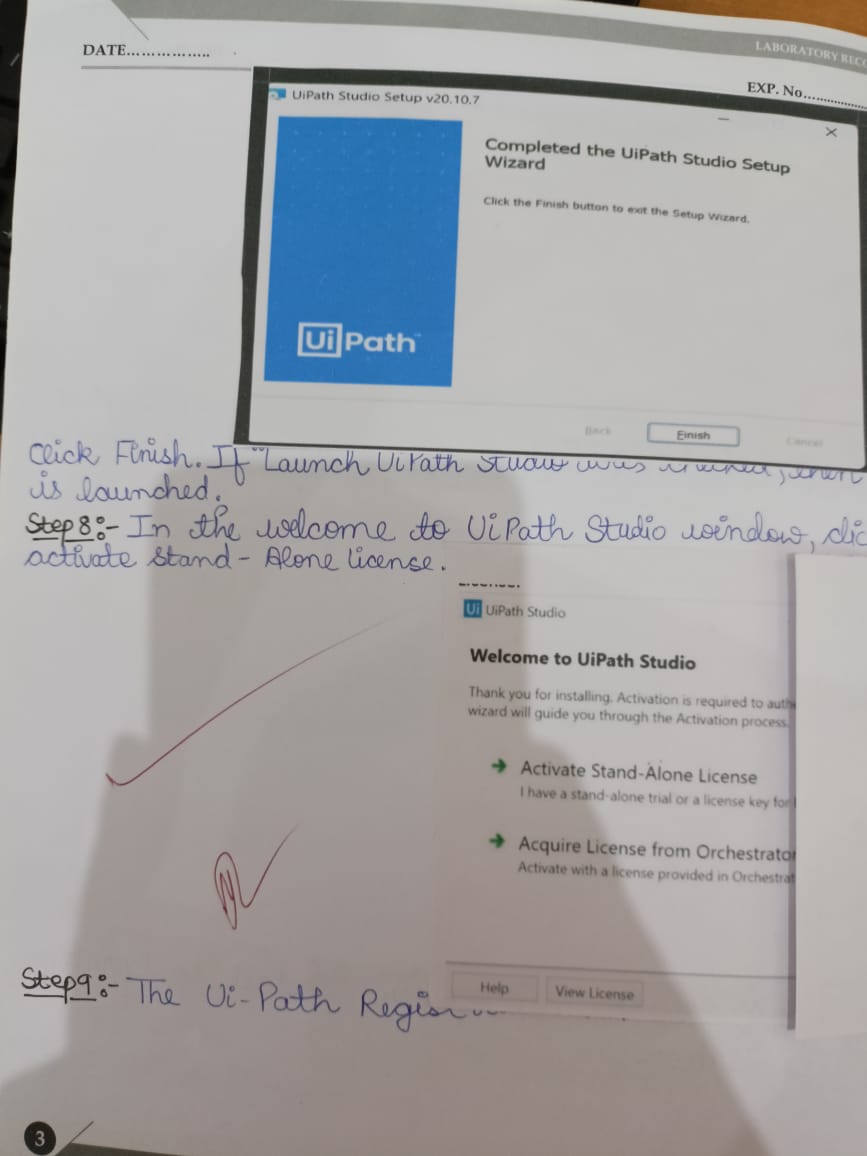 LABORATORY RECO
DATE................
EXP. No...............
UiPath Studio Setup v20.10.7
Completed the UiPath Studio Setup
Wizard
Click the Finish button to exit the Setup Wizard.
UiPath
Back Finish Cancel
Click Finish. If "Launch UiPath Studio was checked, then
is launched.
Step 8:- In the welcome to UiPath Studio window, clic
activate stand-Alone license.
Ui UiPath Studio
Welcome to UiPath Studio
Thank you for installing. Activation is required to auth
wizard will guide you through the Activation process.
Activate Stand-Alone License
I have a stand-alone trial or a license key for
Acquire License from Orchestrator
Activate with a license provided in Orchestrat
Help View License
Step 9:- The Ui-Path Regis
3